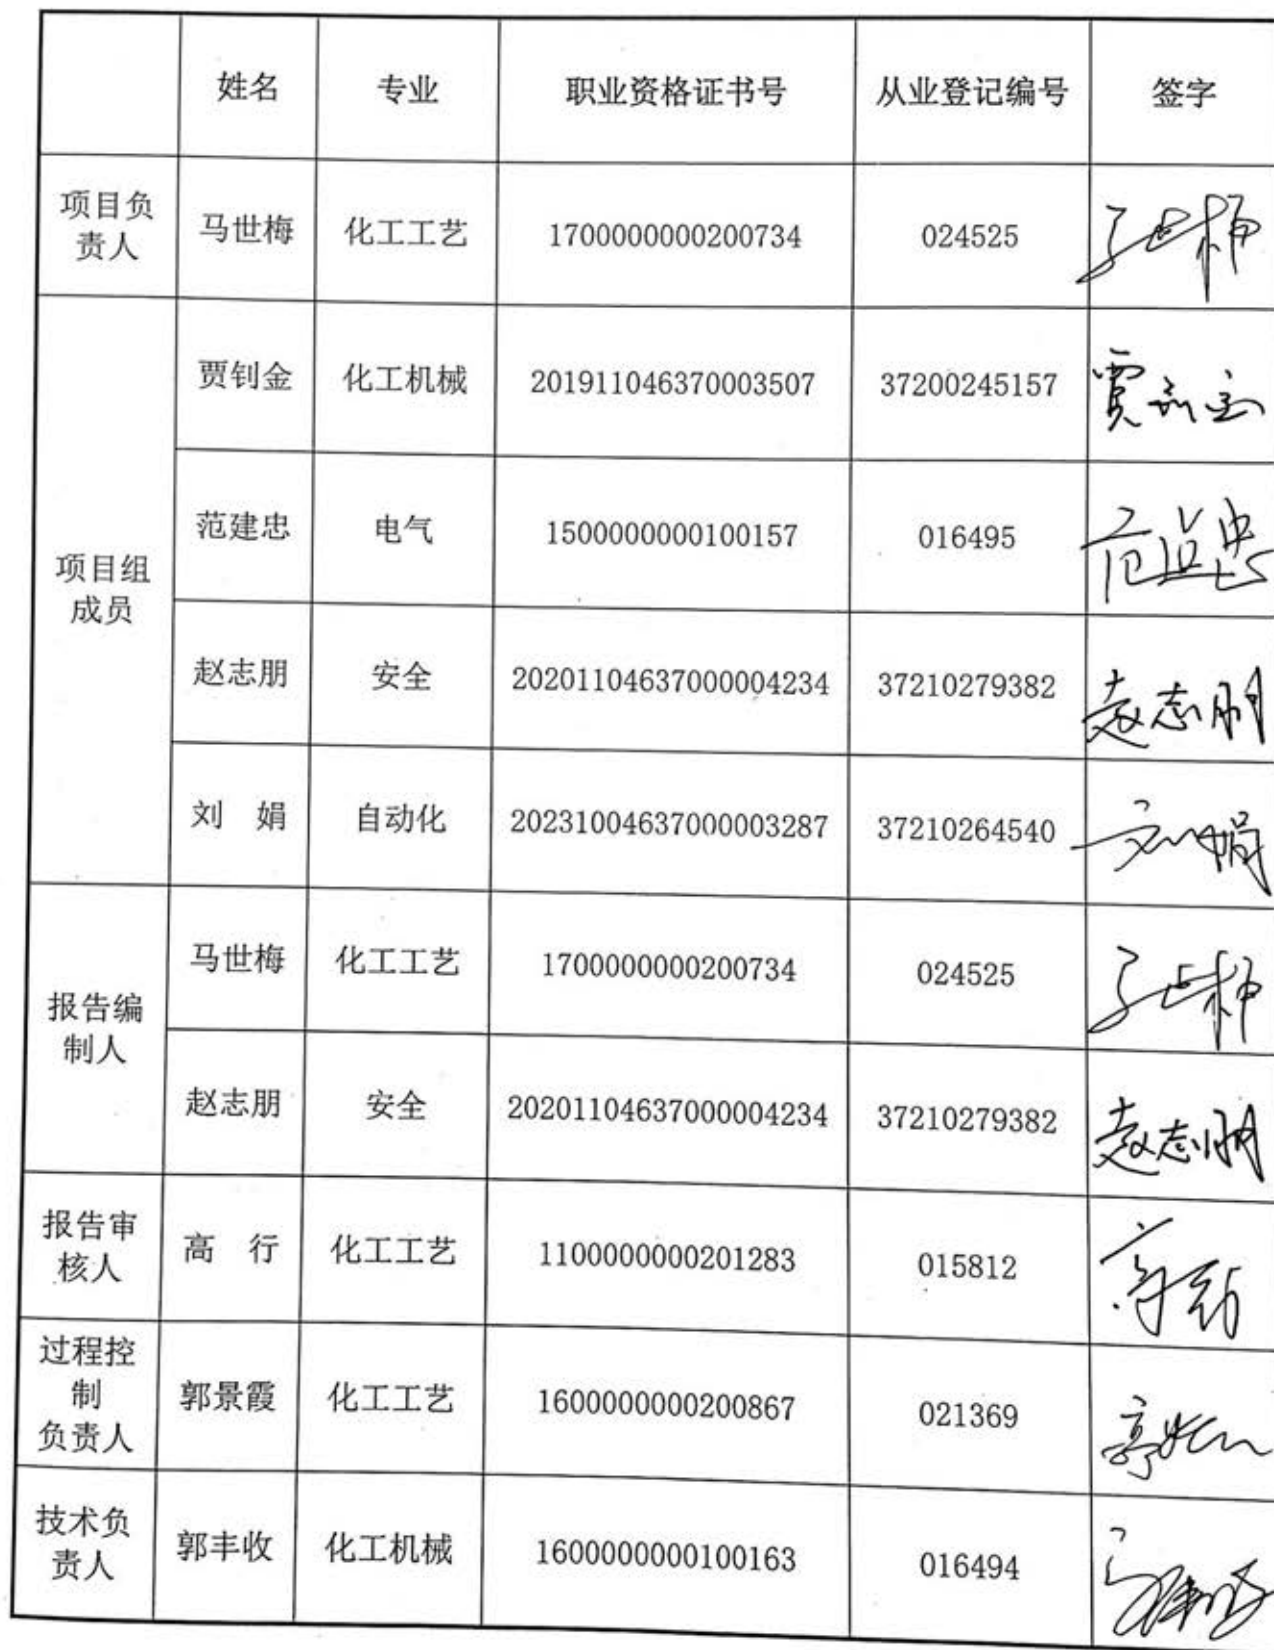 姓名 专业 职业资格证书号 从业登记编号 签字
项目负
责人
马世梅 化工工艺 1700000000200734 024525
项目组
成员
贾钊金 化工机械 201911046370003507 37200245157 贾钊金
范建忠 电气 1500000000100157 016495 范建忠
赵志朋 安全 20201104637000004234 37210279382 赵志朋
刘 娟 自动化 20231004637000003287 37210264540 刘娟
报告编
制人
马世梅 化工工艺 1700000000200734 024525
赵志朋 安全 20201104637000004234 37210279382 赵志朋
报告审
核人
高 行 化工工艺 1100000000201283 015812
过程控
制
负责人
郭景霞 化工工艺 1600000000200867 021369
技术负
责人
郭丰收 化工机械 1600000000100163 016494